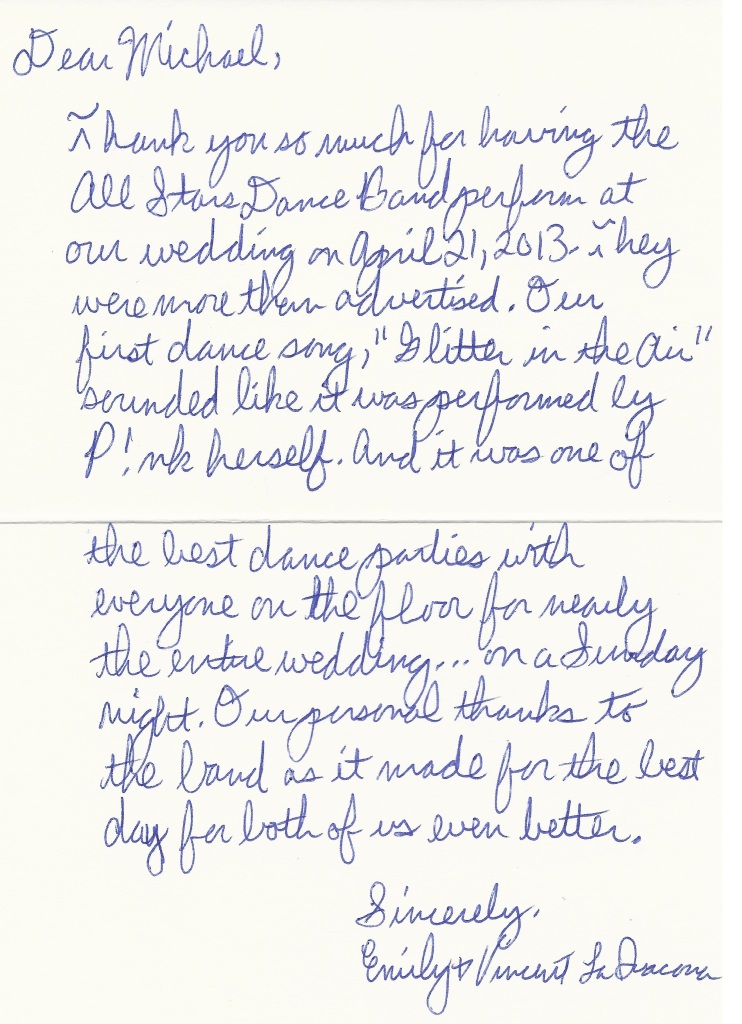 Dear Michael,
Thank you so much for having the
All Stars Dance Band perform at
our wedding on April 21, 2013. They
were more than advertised. Our
first dance song, "Glitter in the Air"
sounded like it was performed by
P!nk herself. And it was one of
the best dance parties with
everyone on the floor for nearly
the entire wedding... on a Sunday
night. Our personal thanks to
the band as it made for the best
day for both of us even better.
Sincerely,
Emily + Vincent